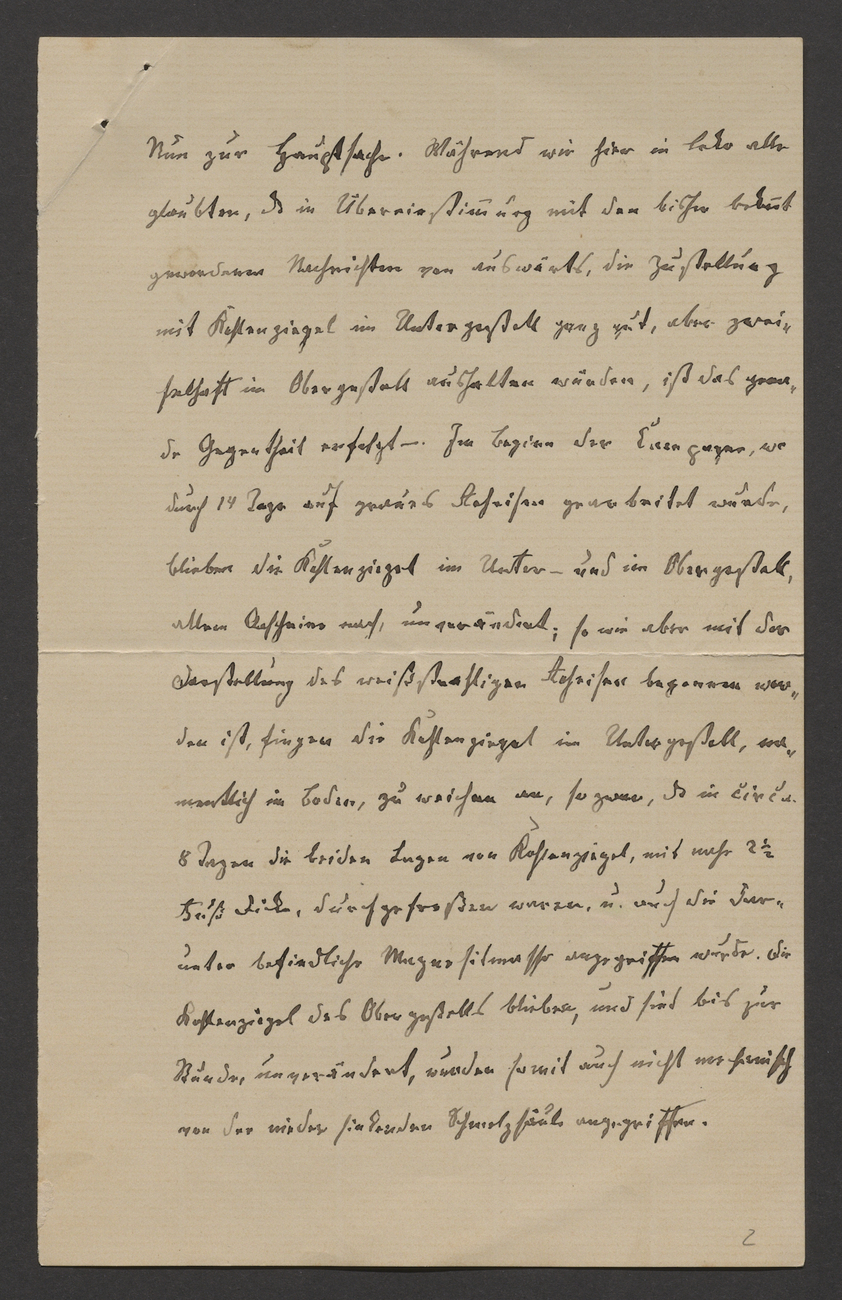 Nun zur Hauptsache. Während wir hier in loko alle
glaubten, dß in Übereinstim̅ung mit den bisher bekan̅t
gewordenen Nachrichten von auswärts, die Zustellung
mit Kohlenziegel im Untergestell ganz gut, aber zwei-
felhaft im Obergestell aushalten würden, ist das gera-
de Gegentheil erfolgt –. Im Beginn der Campagne, wo
durch 14 Tage auf graues Roheisen gearbeitet wurde,
blieben die Kohlenziegel im Unter- und im Obergestell,
allem Anscheine nach, unverändert; so wie aber mit der
Darstellung des weißstrahligen Roheisen begonnen wor-
den ist, fingen die Kohlenziegel im Untergestell, na-
mentlich im Boden, zu weichen an, so zwar, dß in circa
8 Tagen die beiden Lagen von Kohlenziegel, mit nahe 2½
Fuß Dicke, durchgefressen waren, u. auch die dar-
unter befindliche Magnesitmasse angegriffen wurde. Die
Kohlenziegel des Obergestells blieben, und sind bis zur
Stunde, unverändert, wurden somit auch nicht mechanisch
von der nieder sinkenden Schmelzsäule angegriffen.
2